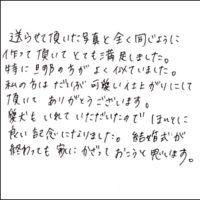 送らせて頂いた写真と全く同じように
作って頂いてとても満足しました。
特に旦那の方がよく似ていました。
私の方はだいぶ可愛い仕上がりにして
頂いてありがとうございます。
愛犬もいれていただいたので ほんとに
良い記念になりました。結婚式が
終わっても家にかざっておこうと思います。